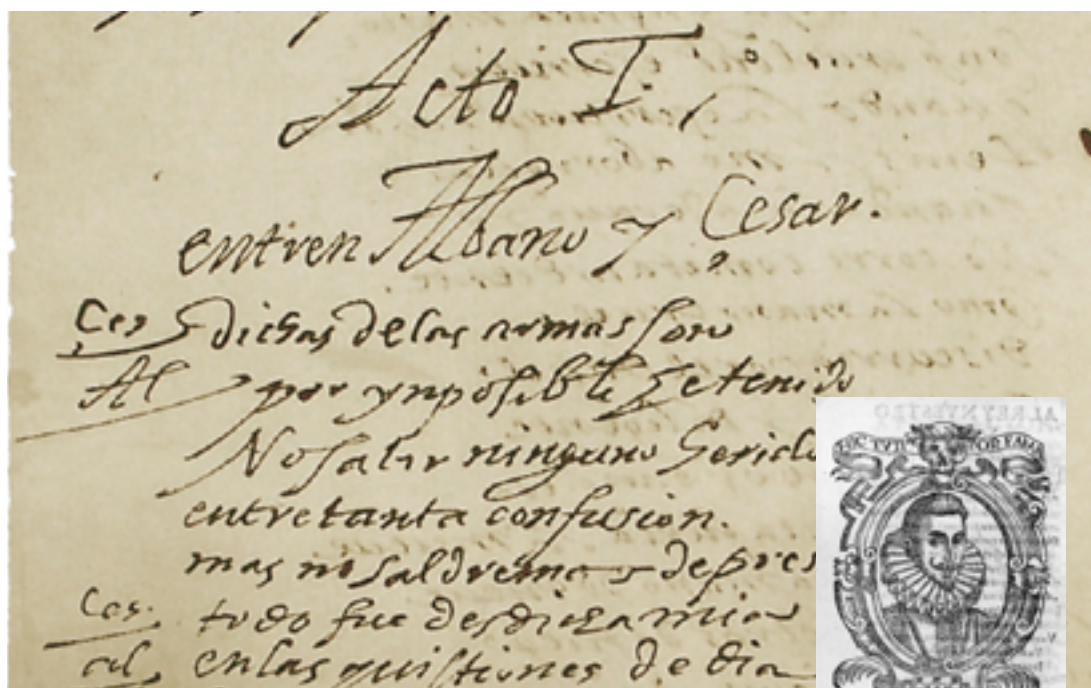 Acto I.
entren Albano y Cesar.
Ces dichas de las armas son
Al por ynposible he tenido
No salir ninguno herido
entre tanta confusion.
mas no saldremos de pres
Ces. todo fue desdicha mia
al, en las quistiones de dia
AL REY NVESTRO
HIC TVTIOR FAMA